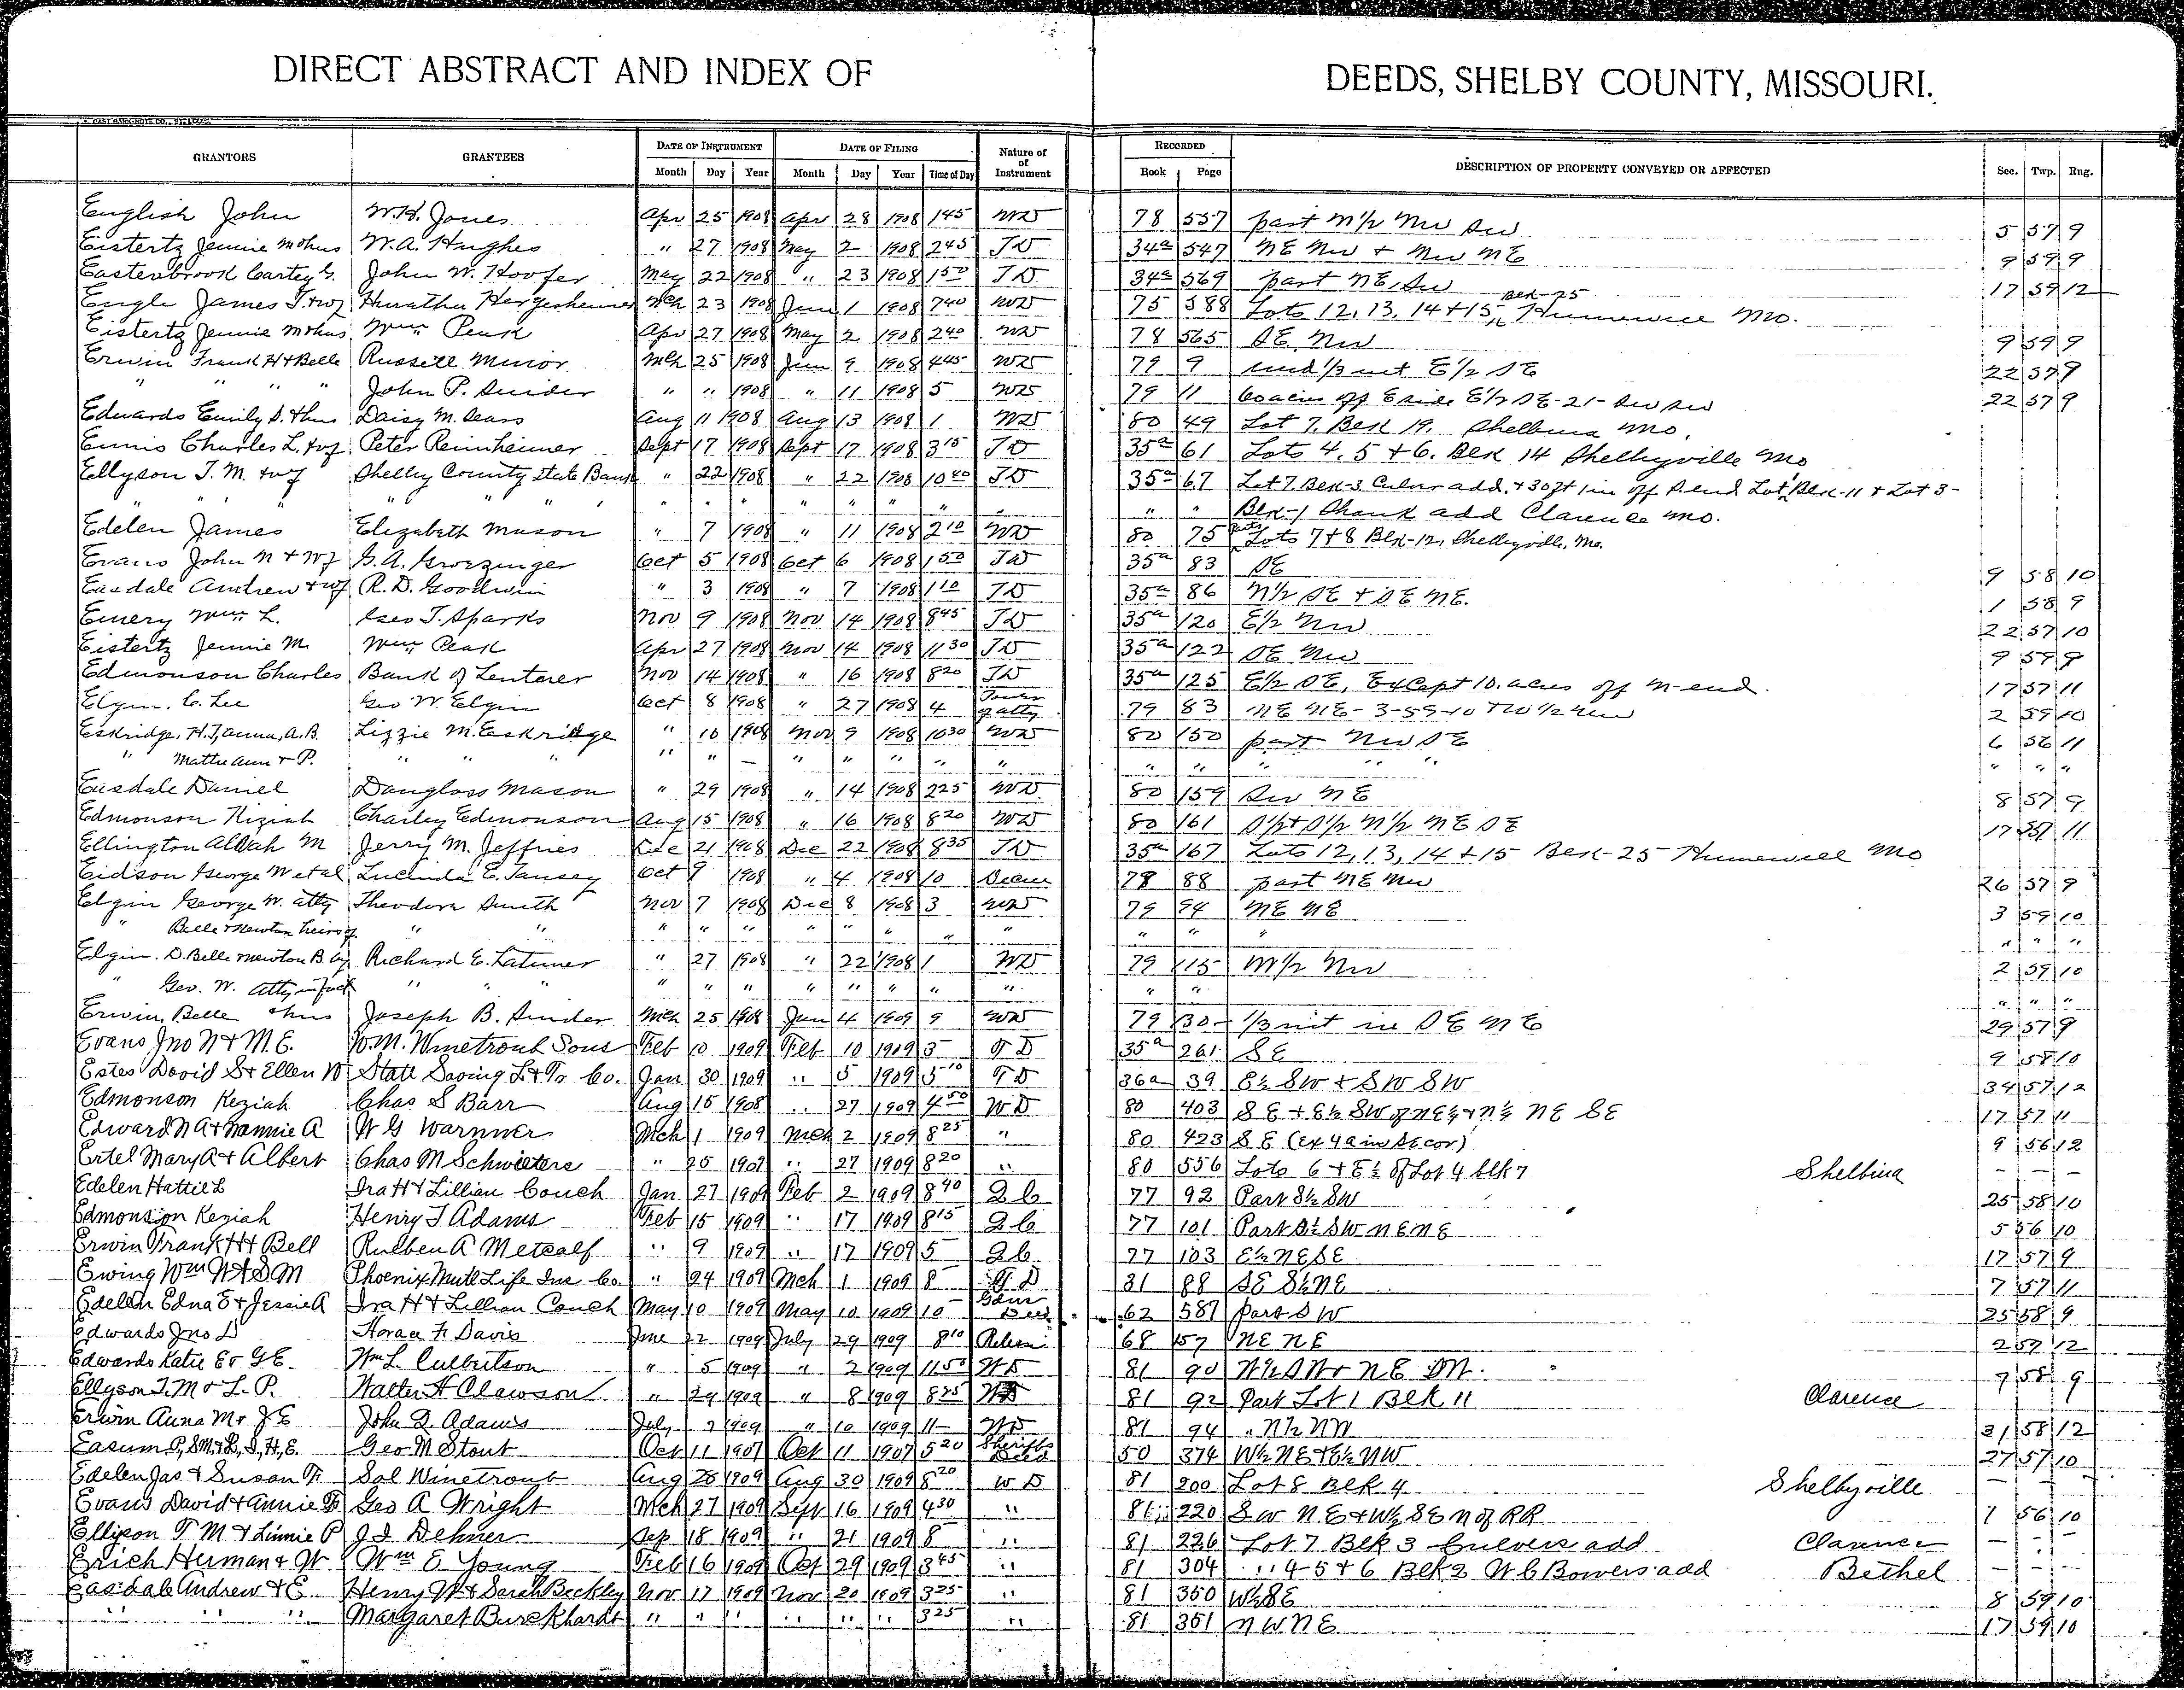 DIRECT ABSTRACT AND INDEX OF DEEDS, SHELBY COUNTY, MISSOURI.
GRANTORS GRANTEES DATE OF INSTRUMENT DATE OF FILING Nature of of Instrument RECORDED DESCRIPTION OF PROPERTY CONVEYED OR AFFECTED Sec. Twp. Rng.
Month Day Year Month Day Year Time of Day Book Page
English John W.H. Jones Apr 25 1908 Apr 28 1908 145 WD 78 557 part N½ NW SW 5 57 9
Eistertz Jennie M & hus W.A. Hughes " 27 1908 May 2 1908 245 TD 34a 547 NE NW & NW NE 9 59 9
Easterbrook Cartey G. John W. Hoofer May 22 1908 " 23 1908 150 TD 34a 569 part NE, SW 17 59 12
Engle James T. & wf Mch 23 1908 June 1 1908 740 WD 75 588 Lots 12, 13, 14 & 15, Blk-25 Hunnewell Mo.
Eistertz Jennie M & hus Wm Peak Apr 27 1908 May 2 1908 240 WD 78 565 SE NW 9 59 9
Erwin Frank H & Belle Russell Minor Mch 25 1908 Jun 9 1908 445 WD 79 9 und ⅓ int E½ SE 22 57 9
" " " " John P. Snider " " 1908 " 11 1908 5 WD 79 11 60 acres off E side E½ SE-21- SW SW 22 57 9
Edwards Emily S. & hus Daisy M. Sears Aug 11 1908 Aug 13 1908 1 WD 80 49 Lot 7, Blk 19, Shelbina Mo.
Ennis Charles L. & wf Peter Reinheimer Sept 17 1908 Sept 17 1908 315 TD 35a 61 Lots 4, 5 & 6, Blk 14 Shelbyville Mo
Ellyson T. M. & wf Shelby County State Bank " 22 1908 " 22 1908 1040 TD 35a 67 Lot 7, Blk-3, Culver add. & 30 ft off S end Lot 1 Blk-11 & Lot 3-
" " " " " " " " " " " " " " " Blk-1 Shank add Clarence Mo.
Edelen James Elizabeth Mason " 7 1908 " 11 1908 210 WD 80 75 parts Lots 7 & 8 Blk-12, Shelbyville, Mo.
Evans John N & wf G.A. Groezinger Oct 5 1908 Oct 6 1908 150 TD 35a 83 SE 9 58 10
Easdale Andrew & wf R. D. Goodwin " 3 1908 " 7 1908 110 TD 35a 86 N½ SE & SE NE. 1 58 9
Emery Wm L. Geo T. Sparks Nov 9 1908 Nov 14 1908 845 TD 35a 120 E½ NW 22 57 10
Eistertz Jennie M. Wm Peak Apr 27 1908 Nov 14 1908 1130 TD 35a 122 SE NW 9 59 9
Edmonson Charles Bank of Lentner Nov 14 1908 " 16 1908 820 TD 35a 125 E½ SE, Except 10. acres off N-end. 17 57 11
Elgin, C. Lee Geo W. Elgin Oct 8 1908 " 27 1908 4 Power of atty 79 83 NE NE-3-59-10 & W½ NW 2 59 10
Eskridge, H.T, Anna, A.B. Lizzie M. Eskridge " 10 1908 Nov 9 1908 1030 WD 80 150 part NW SE 6 56 11
" Mattie Ann & P. " " " " " — " " " " " " " " " " " " "
Easdale Daniel Dougloss Mason " 29 1908 " 14 1908 225 WD 80 159 SW NE 8 57 9
Edmonson Kiziah Charley Edmonson Aug 15 1908 " 16 1908 820 WD 80 161 S½ & S½ N½ NE SE 17 57 11
Ellington Aldah M Jerry M. Jeffries Dec 21 1908 Dec 22 1908 835 TD 35a 167 Lots 12, 13, 14 & 15 Blk-25 Hunnewell Mo
Eidson George W et al Lucinda E. Tansey Oct 9 1908 " 4 1908 10 Decree 78 88 part NE NW 26 57 9
Elgin George W. atty Theodora Smith Nov 7 1908 Dec 8 1908 3 WD 79 94 NE NE 3 59 10
" Belle & Newton heirs of " " " " " " " " " " " " " " " "
Elgin. D. Belle Newton B. by Richard E. Latimer " 27 1908 " 22 1908 1 WD 79 115 W½ NW 2 59 10
" Geo. W. Atty in fact " " " " " " " " " " " " " " " "
Erwin, Belle & hus Joseph B. Snider Mch 25 1908 Jan 4 1909 9 WD 79 130 ⅓ int in SE NE 29 57 9
Evans Jno N & M.E. W.M. Winetroub Sons Feb 10 1909 Feb 10 1909 3 TD 35a 261 SE 9 58 10
Estes David S & Ellen N State Saving L & Tr Co. Jan 30 1909 " 5 1909 510 TD 36a 39 E½ SW & SW SW 34 57 12
Edmonson Keziah Chas S Barr Aug 15 1908 " 27 1909 450 WD 80 403 SE & E½ SW of NE¼ & N½ NE SE 17 57 11
Edward N A & Nannie A W G Warnner Mch 1 1909 Mch 2 1909 825 " 80 423 SE (Ex 4a in SE cor) 9 56 12
Ertel Mary A & Albert Chas M Schwieters " 25 1909 " 27 1909 820 " 80 556 Lots 6 & E½ of Lot 4 blk 7 Shelbina – – –
Edelen Hattie L Ira H & Lillian Couch Jan 27 1909 Feb 2 1909 840 Q C 77 92 Part S½ SW 25 58 10
Edmonson Keziah Henry T Adams Feb 15 1909 " 17 1909 815 Q C 77 101 Part S½ SW NE NE 5 56 10
Erwin Frank H & Bell Rueben A. Metcalf " 9 1909 " 17 1909 5 Q C 77 103 E½ NE SE 17 57 9
Ewing Wm N & S M Phoenix Mutl Life Ins Co. " 24 1909 Mch 1 1909 8 D 31 88 SE S½ NE 7 57 11
Edelen Edna E & Jessie A Ira H & Lillian Couch May 10 1909 May 10 1909 10 Gdns Deed 62 587 Part SW 25 58 9
Edwards Jno D Horace F. Davis June 22 1909 July 29 1909 810 68 157 NE NE 2 59 12
Edwards Katie E & G E. Wm L. Culbertson " 5 1909 " 2 1909 1150 WD 81 90 7 58 9
Ellyson T. M & L. P. Walter H Clawson " 29 1909 " 8 1909 825 WD 81 92 Part Lot 1 Blk 11 Clarence
Erwin Anna M & J E John Q. Adams July 9 1909 " 10 1909 11 WD 81 94 " N½ NW 31 58 12
Easum, P, S M, & L, I, H, E. Geo M Stout Oct 11 1907 Oct 11 1907 520 Sheriffs Deed 50 374 W½ NE & E½ NW 27 57 10
Edelen Jas & Susan F. Sol Winetroub Aug 28 1909 Aug 30 1909 820 W D 81 200 Lot 8 Blk 4 Shelbyville – – –
Evans David & Annie Geo A Wright Mch 27 1909 Sept 16 1909 430 " 81 220 SW NE & W½ SE N of RR 1 56 10
Ellison T M & Linnie P J I Dehner Sep 18 1909 " 21 1909 8 " 81 226 Lot 7 Blk 3 Culvers add Clarence – – –
Erich Herman & W Wm E Young Feb 16 1909 Oct 29 1909 345 " 81 304 " 4-5 & 6 Blk 2 W C Bowers add Bethel – – –
Easdale Andrew & E Henry W & Sarah Beckley Nov 17 1909 Nov 20 1909 325 " 81 350 W½ SE 8 59 10
" " " Margaret Burckhardt " " " " " " 325 " 81 351 NW NE 17 59 10